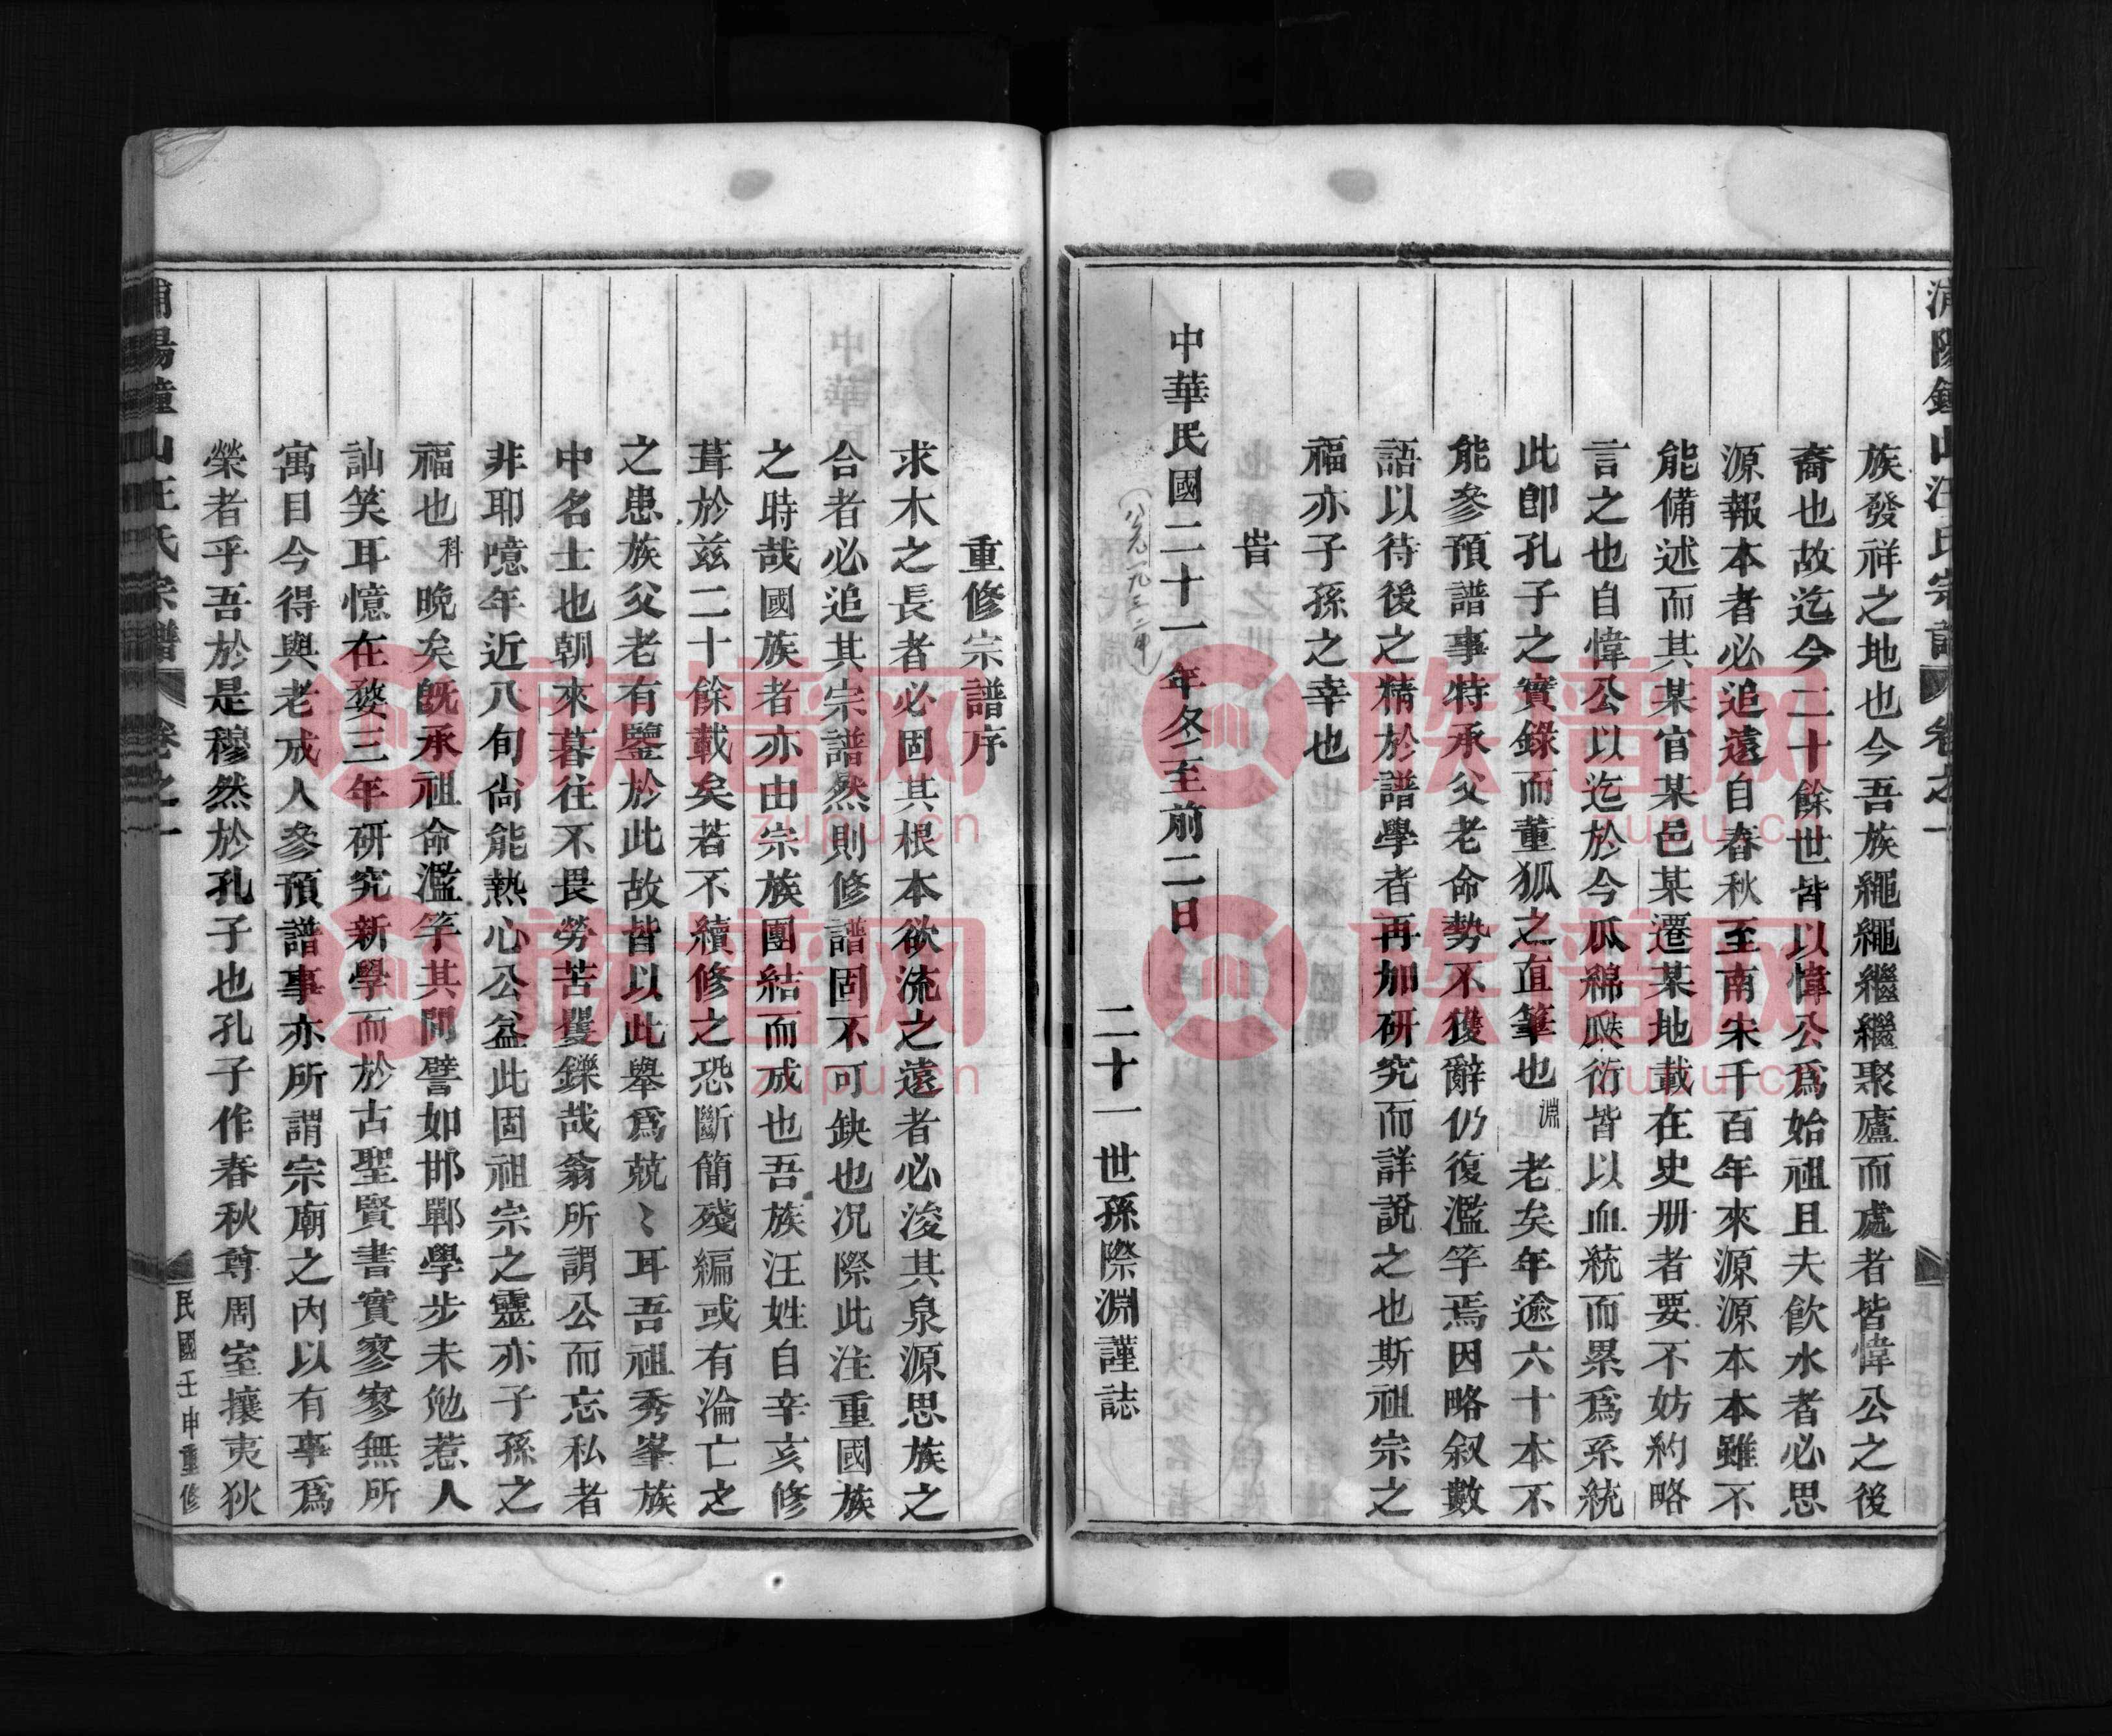 族發祥之地也今吾族繩繩繼繼聚廬而處者皆偉公之後
裔也故迄今二十餘世皆以偉公爲始祖且夫飲水者必思
源報本者必追遠自春秋至南宋千百年來源源本本雖不
能備述而其某官某邑某遷某地載在史册者要不妨約略
言之也自偉公以迄於今瓜綿瓜衍皆以血統而累爲系統
此卽孔子之實錄而董狐之直筆也淵老矣年逾六十本不
能參預譜事特承父老命勢不獲辭仍復濫竽焉因略叙數
語以待後之精於譜學者再加研究而詳說之也斯祖宗之
福亦子孫之幸也
旹
中華民國二十一年冬至前二日
二十一世孫際淵謹誌
重修宗譜序
求木之長者必固其根本欲流之遠者必浚其泉源思族之
合者必追其宗譜然則修譜固不可缺也况際此注重國族
之時哉國族者亦由宗族團結而成也吾族汪姓自辛亥修
葺於兹二十餘載矣若不續修之恐斷簡殘編或有淪亡之
之患族父老有鑒於此故皆以此舉爲兢〻耳吾祖秀峯族
中名士也朝來暮往不畏勞苦矍鑠哉翁所謂公而忘私者
非耶噫年近八旬尙能熱心公益此固祖宗之靈亦子孫之
福也科晩矣旣承祖命濫竽其間譬如邯鄲學步未勉惹人
訕笑耳憶在婺三年研究新學而於古聖賢書實寥寥無所
寓目今得與老成人參預譜事亦所謂宗廟之內以有事爲
榮者乎吾於是穆然於孔子也孔子作春秋尊周室攘夷狄
浦陽鐘山汪氏宗譜 卷之一
民國壬申重修
族谱网
zupu.cn
族谱网
zupu.cn
族谱网
zupu.cn
族谱网
zupu.cn